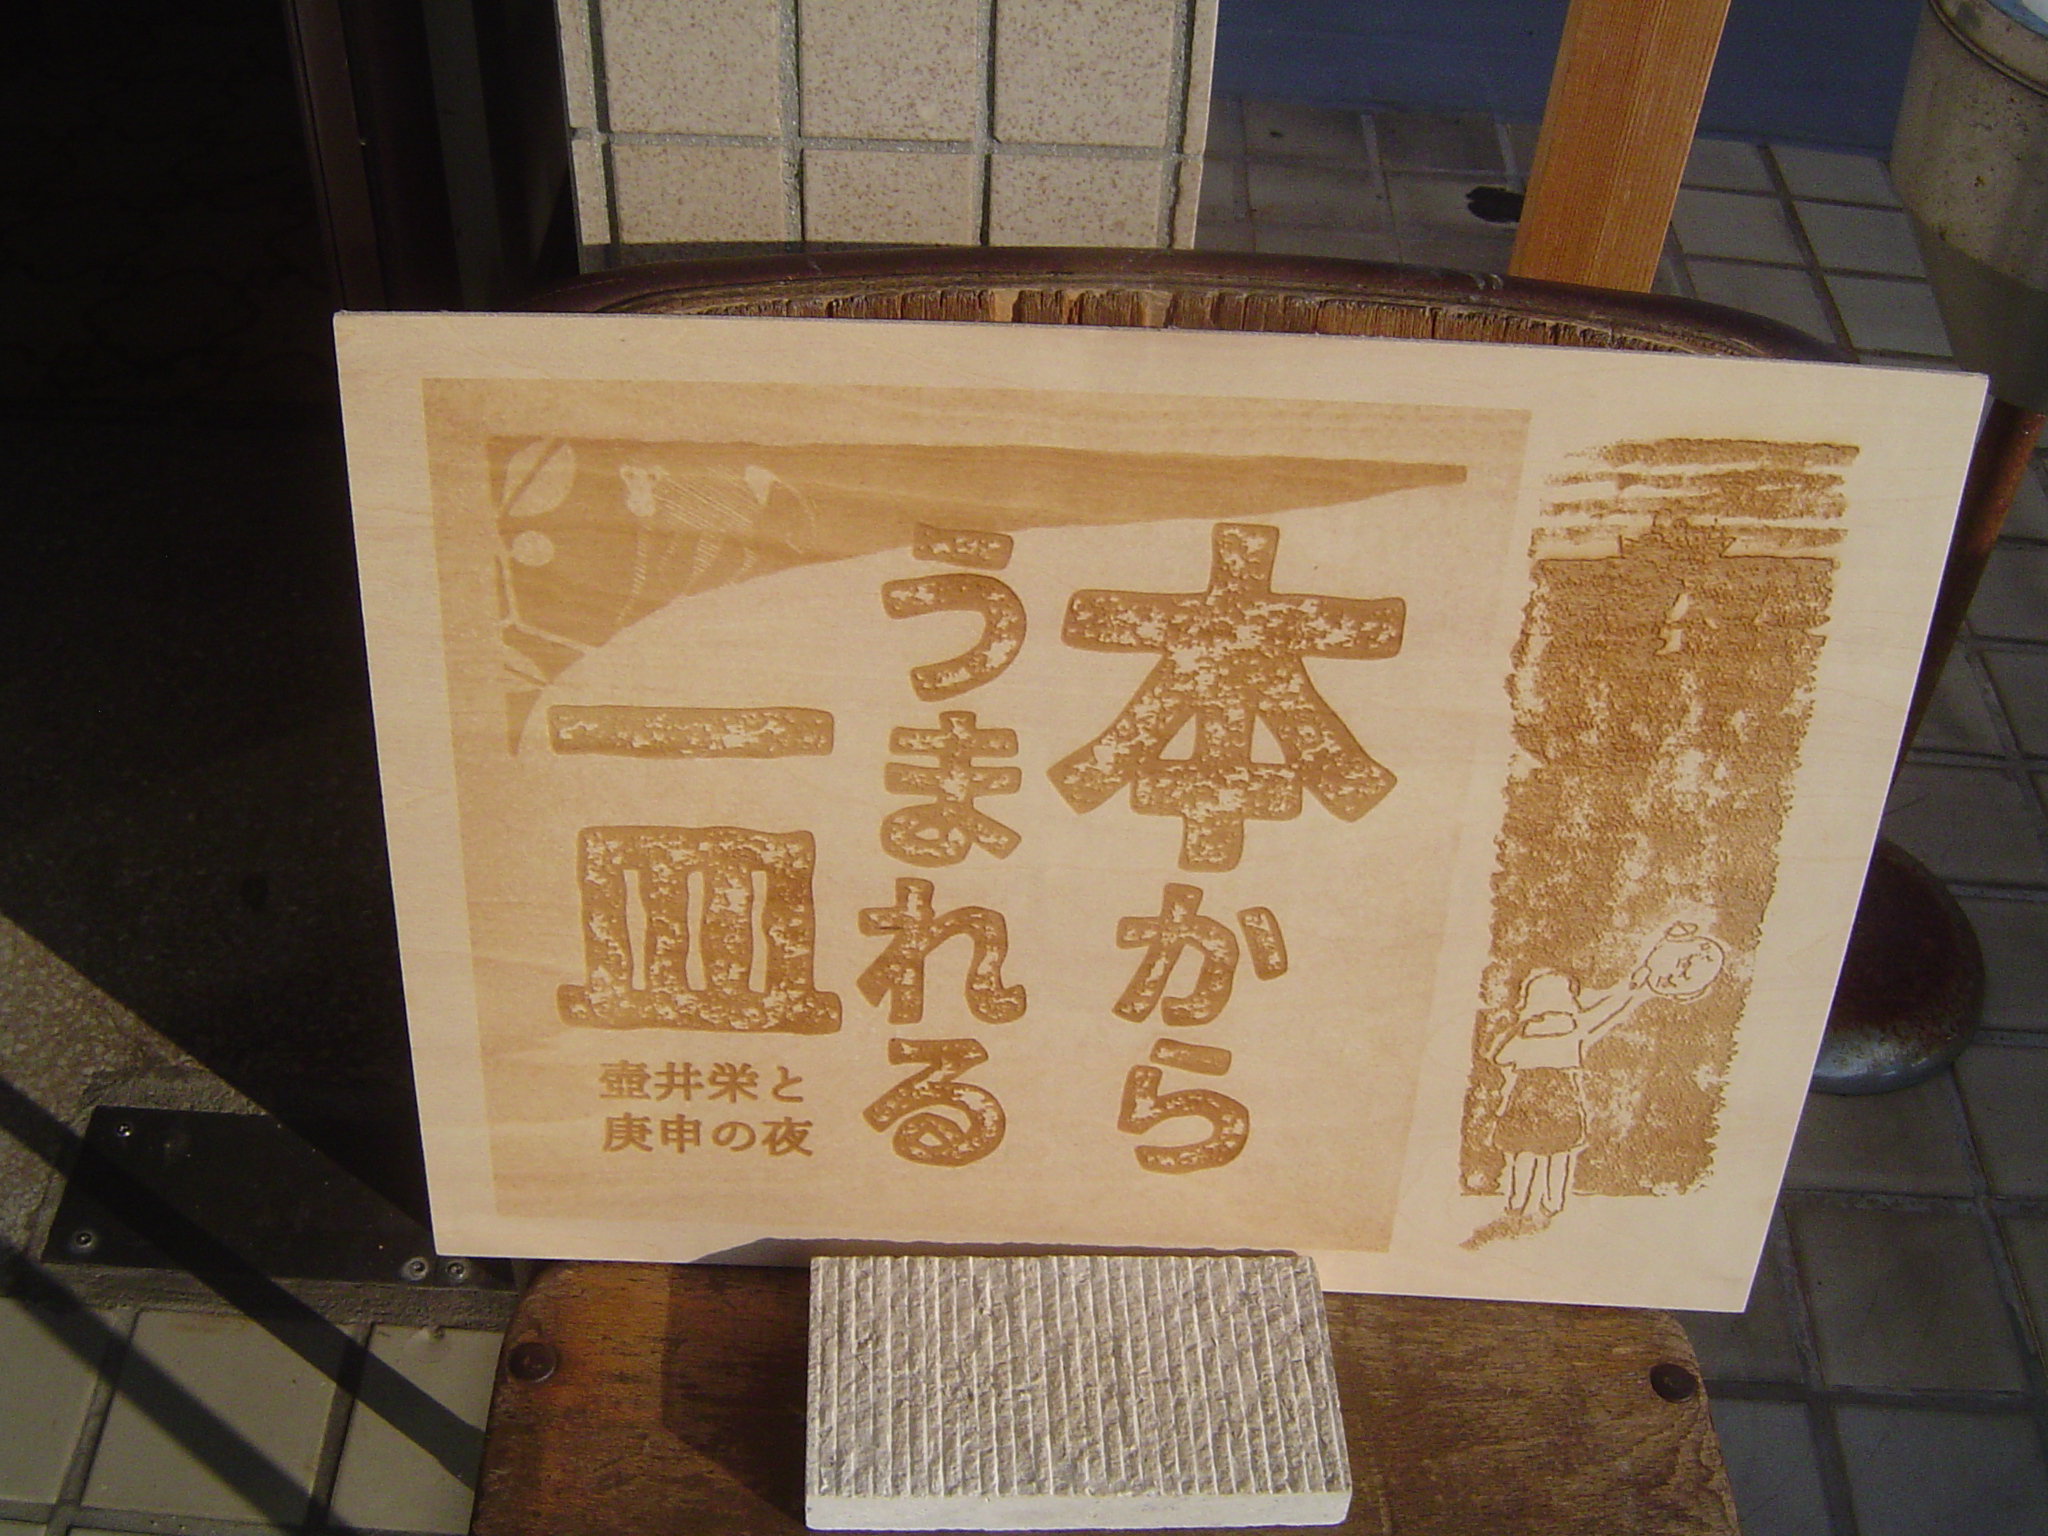 本から
うまれる
一皿
壺井栄と
庚申の夜